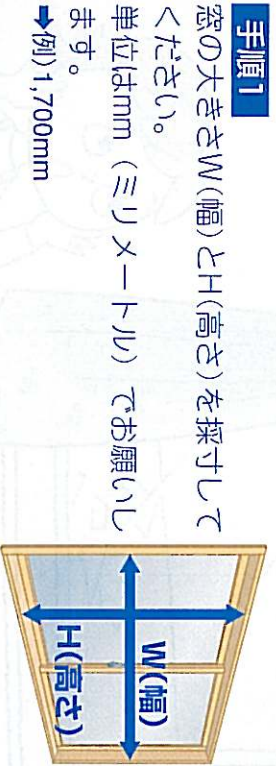 手順1
窓の大きさW(幅)とH(高さ)を採寸して
ください。
単位はmm（ミリメートル）でお願いし
ます。
➡例)1,700mm
W(幅)
H(高さ)